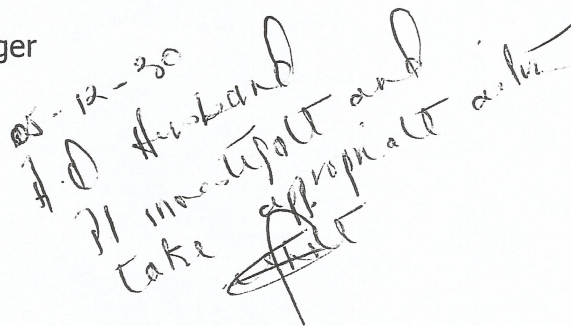 ger
05-12-30
A.D Husband
Pl investigate and
take appropriate action